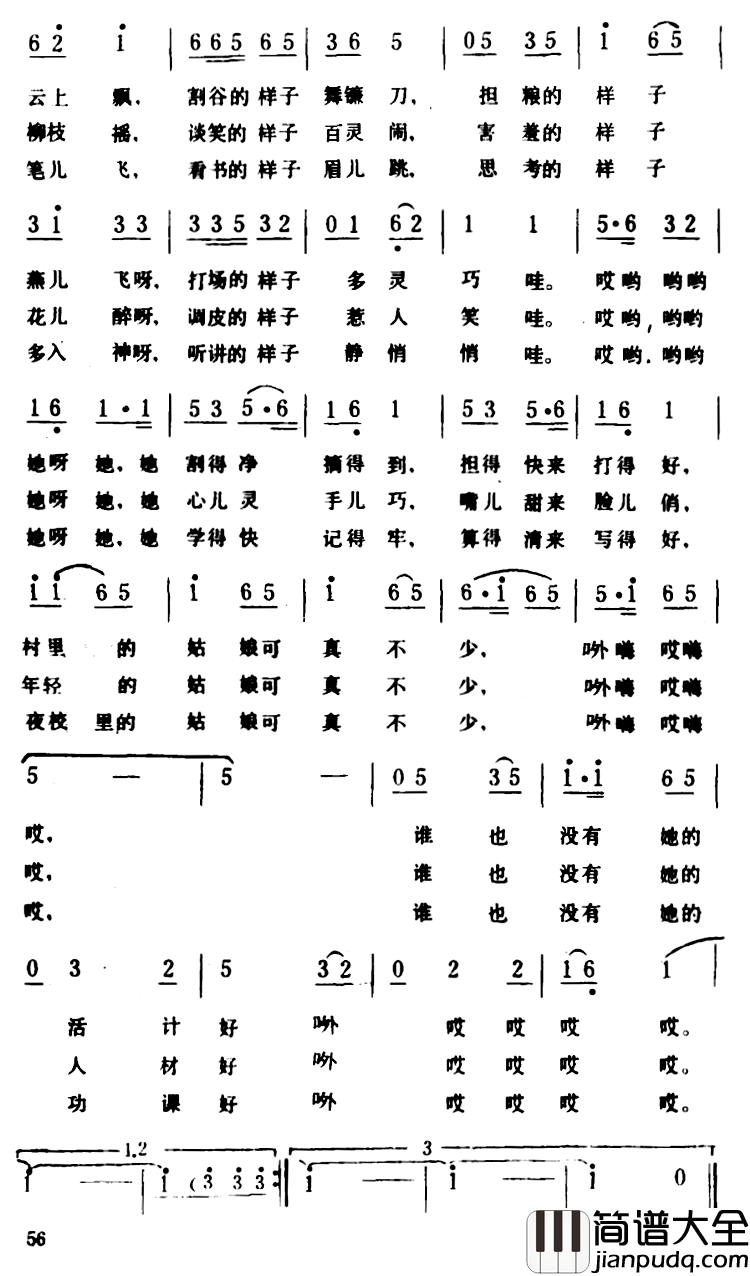 6 2 i | 6 6 5 6 5 | 3 6 5 | 0 5 3 5 | i 6 5 |
云上 飘, 割谷的 样子 舞镰 刀, 担 粮的 样 子
柳枝 摇, 谈笑的 样子 百灵 闹, 害 羞的 样 子
笔儿 飞, 看书的 样子 眉儿 跳, 思 考的 样 子
3 i 3 3 | 3 3 5 3 2 | 0 1 6 2 | 1 1 | 5·6 3 2 |
燕儿 飞呀, 打场的 样子 多 灵 巧 哇。 哎哟 哟哟
花儿 醉呀, 调皮的 样子 惹 人 笑 哇。 哎哟, 哟哟
多入 神呀, 听讲的 样子 静 悄 悄 哇。 哎哟. 哟哟
1 6 1·1 | 5 3 5·6 | 1 6 1 | 5 3 5·6 | 1 6 1 |
她呀 她, 她 割得 净 摘得 到, 担得 快来 打得 好,
她呀 她, 她 心儿 灵 手儿 巧, 嘴儿 甜来 脸儿 俏,
她呀 她, 她 学得 快 记得 牢, 算得 清来 写得 好,
i i 6 5 | i 6 5 | i 6 5 | 6·i 6 5 | 5·i 6 5 |
村里 的 姑 娘可 真 不 少, 哟嗨 哎嗨
年轻 的 姑 娘可 真 不 少, 哟嗨 哎嗨
夜校 里的 姑 娘可 真 不 少, 哟嗨 哎嗨
5 — | 5 — | 0 5 3 5 | i·i 6 5 |
哎, 谁 也 没有 她的
哎, 谁 也 没有 她的
哎, 谁 也 没有 她的
0 3 2 | 5 3 2 | 0 2 2 | 1 6 1 |
活 计 好 哟 哎 哎 哎 哎。
人 材 好 哟 哎 哎 哎 哎。
功 课 好 哟 哎 哎 哎 哎。
1.2 3
i — | i (3 3 3 :| i — | i — | i 0 |
56
简谱大全
jianpudq.com